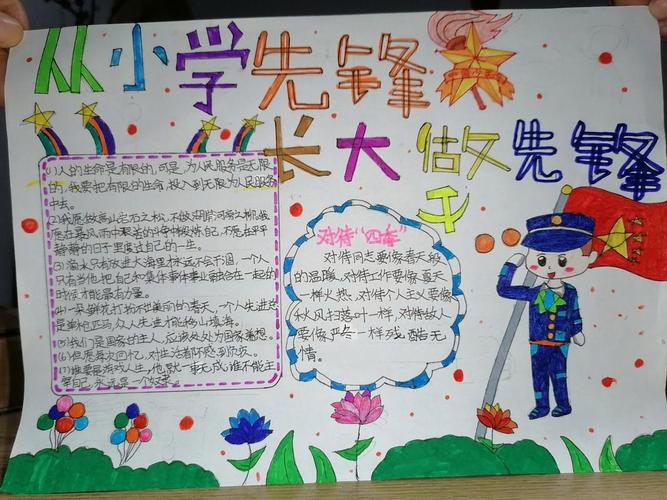 从小学先锋
长大做先锋
(1)人的生命是有限的,可是,为人民服务是无限
的,我要把有限的生命,投入到无限为人民服务
中去。
(2)我愿做高山岩石之松,不做湖岸河旁之柳。我
愿在暴风雨中 自己,不愿在平平
静静的日子里度过自己的一生。
(3)滴水只有放进大海里才永远不干涸,一个人
只有当他把自己和集体事业融合在一起的
时候才能最有力量。
(4)一朵鲜花打扮不出美丽的春天,一个人先进总
是单枪匹马,众人先进才能移山填海。
(5)我们是国家的主人,应该处处为国家着想。
(6)但愿每次回忆,对生活都不感到负疚。
(7)谁要是游戏人生,他就一事无成,谁不能主
宰自己,永远是一个奴隶。
对待“四季”
对待同志要像春天般
的温暖,对待工作要像夏天
一样火热,对待个人主义要像
秋风扫落叶一样,对待敌人
要像严冬一样残酷无
情。